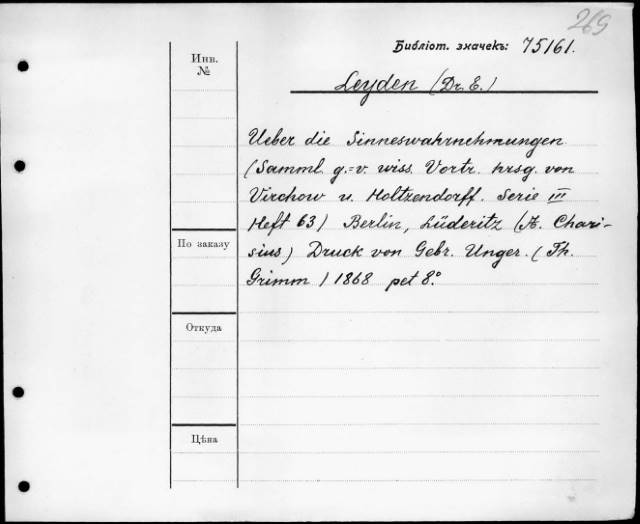 269
Библіот. значекъ: 75161.
Инв.
№
Leyden (Dr. E.)
Ueber die Sinneswahrnehmungen
(Samml. g.=v. wiss. Vortr. hrsg. von
Virchow u. Holtzendorff. Serie III
Heft 63) Berlin, Lüderitz (A. Chari-
sius) Druck von Gebr. Unger. (Th.
Grimm) 1868 pet 8.°
По заказу
Откуда
Цѣна